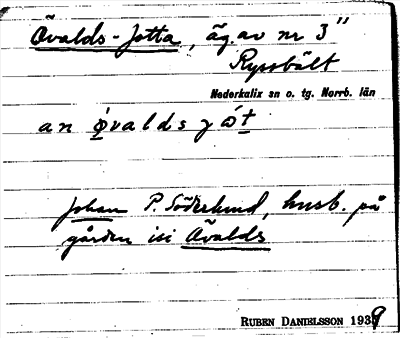 Övalds-Jotta, äg. av nr 3"
Ryssbält
Nederkalix sn o. tg. Norrb. län
an øvalds
Johan P. Söderlund, husb. på
gården isi Övalds
RUBEN DANIELSSON 1939